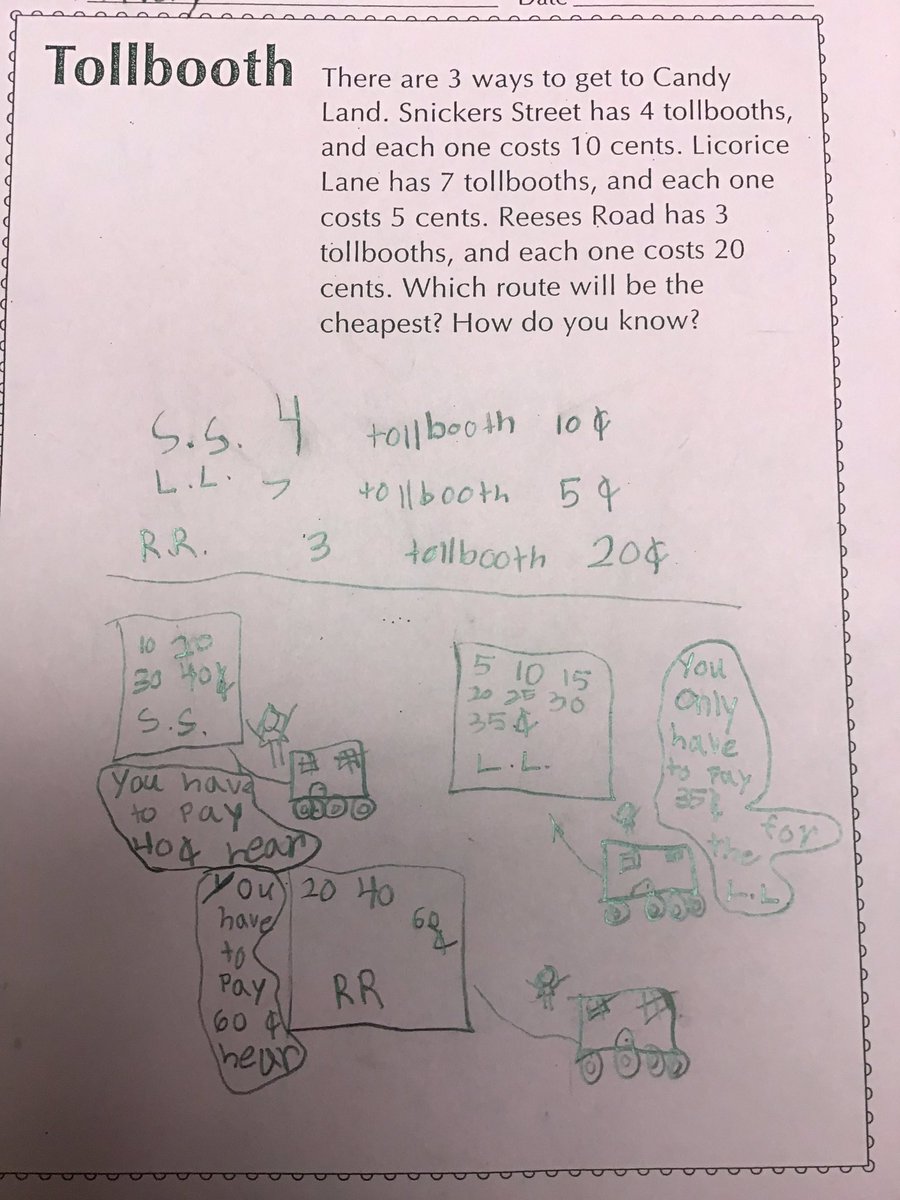 Date
Tollbooth
There are 3 ways to get to Candy
Land. Snickers Street has 4 tollbooths,
and each one costs 10 cents. Licorice
Lane has 7 tollbooths, and each one
costs 5 cents. Reeses Road has 3
tollbooths, and each one costs 20
cents. Which route will be the
cheapest? How do you know?
S.S. 4 tollbooth 10¢
L.L. 7 tollbooth 5¢
R.R. 3 tollbooth 20¢
10 20
30 40¢
S.S.
You have
to pay
40¢ hear
5 10 15
20 25 30
35¢
L.L.
You
only
have
to pay
35¢ for
the
L.L
You
have
to
Pay
60¢
hear
20 40
60¢
RR